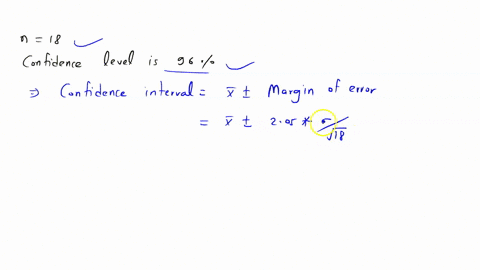 n = 18 ✓
Confidence level is 96% ✓
⇒ Confidence interval = x̄ ± Margin of error
= x̄ ± 2.05 * σ/√18